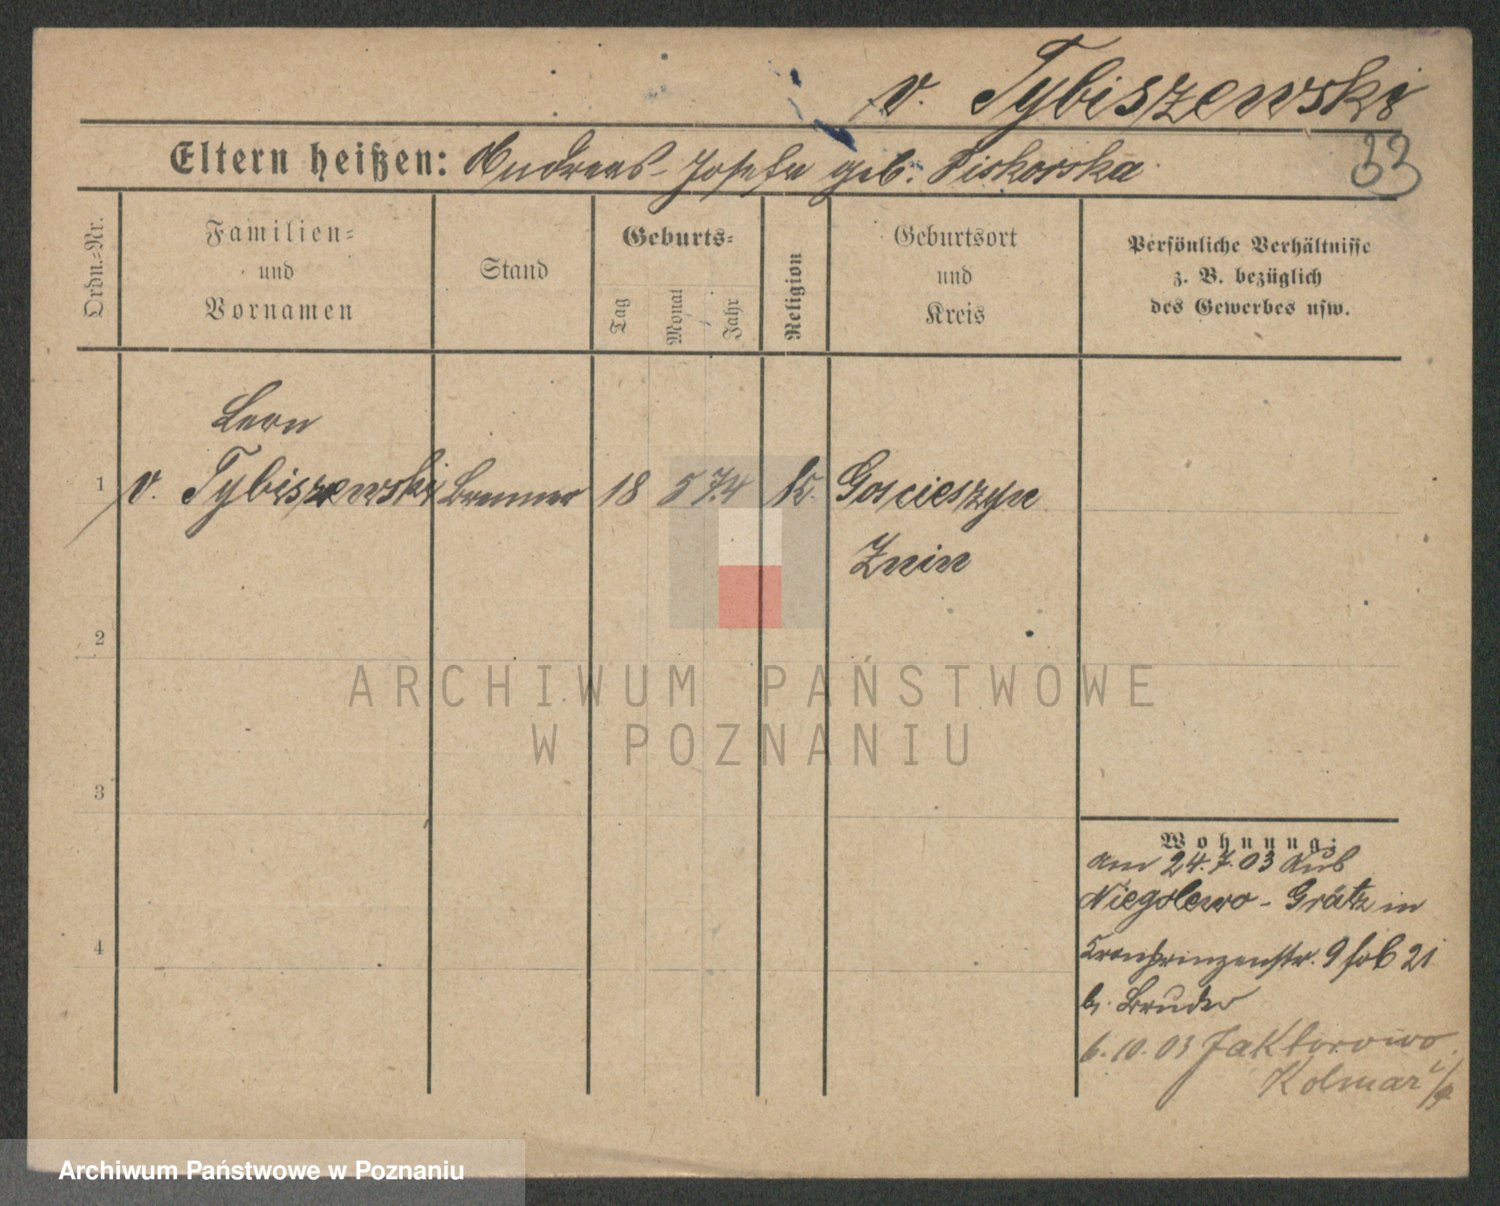 v. Tybiszewski
Eltern heißen: Andreas - Josefa geb. Piskorska
33
Ordn.-Nr.
Familien-
und
Vornamen
Stand
Geburts-
Tag
Monat
Jahr
Religion
Geburtsort
und
Kreis
Persönliche Verhältnisse
z. B. bezüglich
des Gewerbes usw.
Leon
1 v. Tybiszewski Brenner 18 5 74 K. Goscieszyn
Znin
2
ARCHIWUM PAŃSTWOWE
W POZNANIU
3
Wohnung:
am 24.7.03 aus
Niegolewo - Grätz in
4
Kronprinzenstr. 9 bei 21
b. Bruder
6.10.03 Jaktorowo
Kolmar i/P.
Archiwum Państwowe w Poznaniu